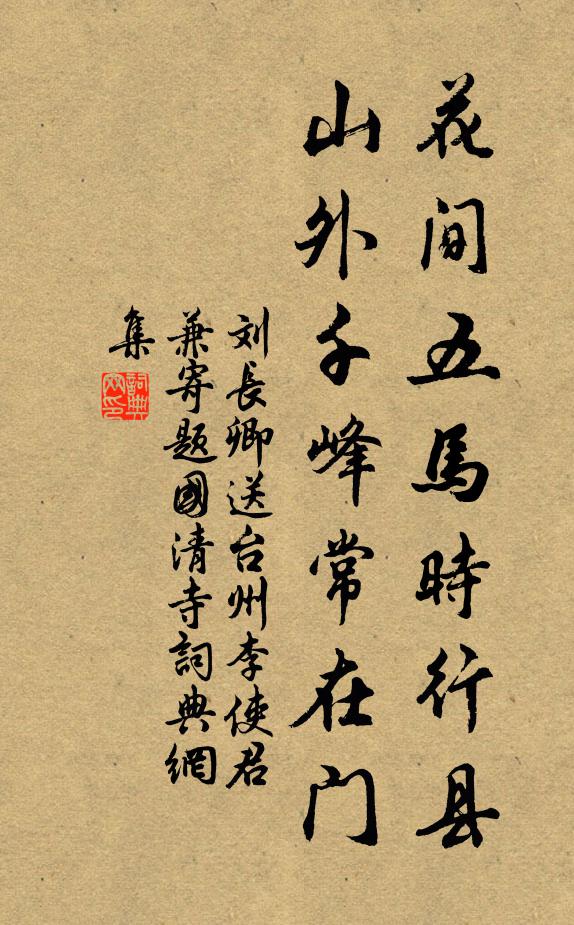 花间五馬時行县
山外千峰常在门
刘長卿送台州李使君
兼寄題國清寺詞典網
集
詞典網印